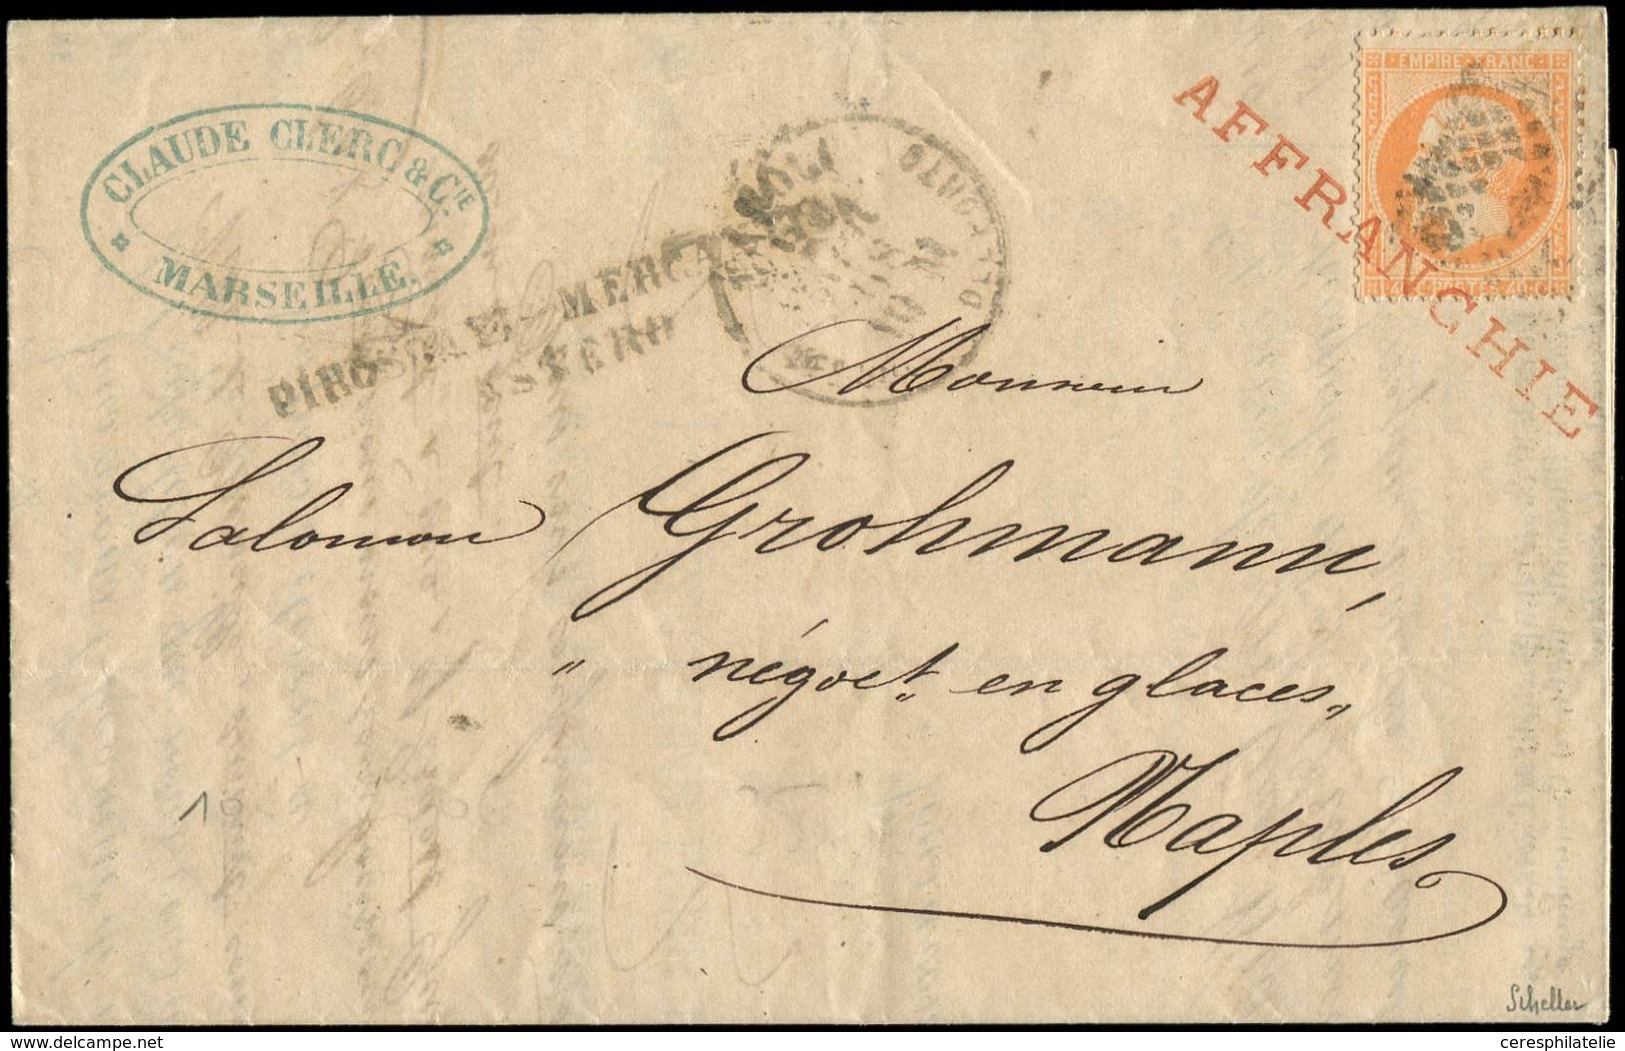 CLAUDE CLERC & CIE.
MARSEILLE.
PIROSCAFI-MERCANTILI
ESTERO
AFFRANCHIE
EMPIRE FRANC
POSTES 40
10 M
Monsieur
Salomon Grohmann,
" négoct. en glaces,
Naples.
10
Scheller
delcampe.net
ceresphilatelie